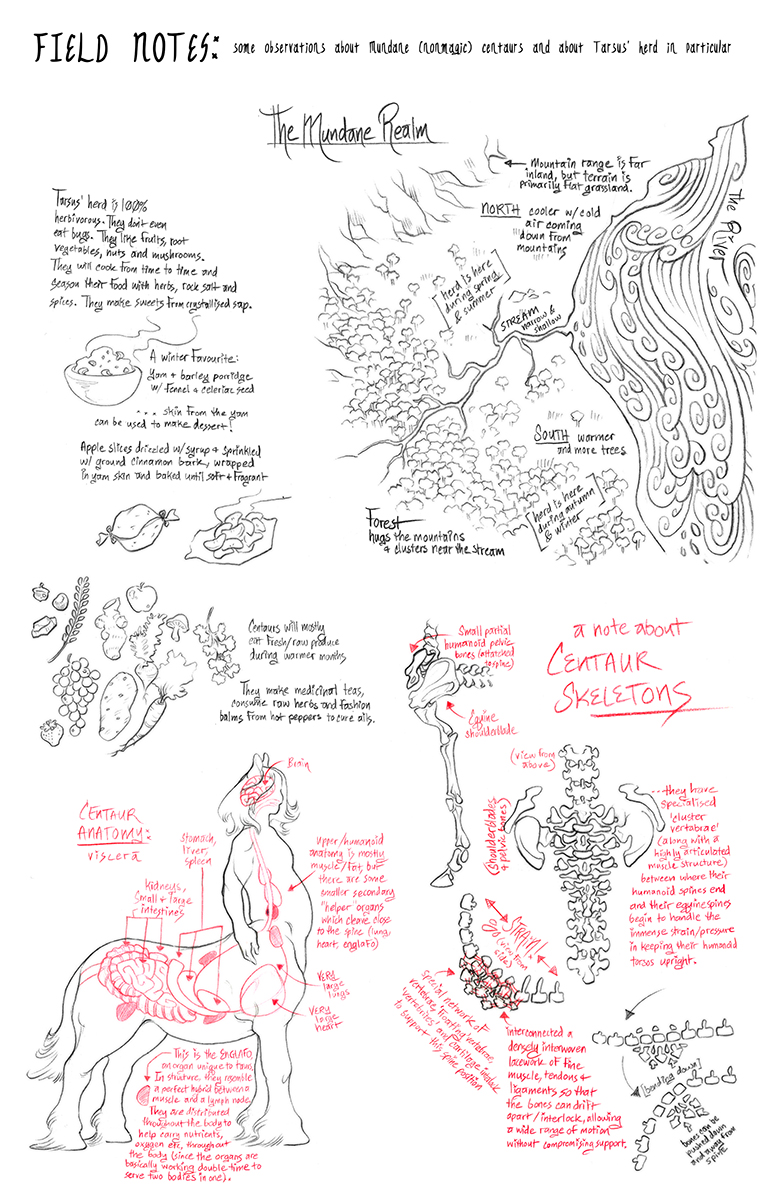 FIELD NOTES: some observations about Mundane (nonmagic) centaurs and about Tarsus' herd in particular
The Mundane Realm
Mountain range is far
inland, but terrain is
primarily flat grassland.
NORTH cooler w/cold
air coming
down from
mountains
The River
herd is here
during spring
& summer
STREAM
narrow &
shallow
SOUTH warmer
and more trees
herd is here
during autumn
& winter
Forest
hugs the mountains
& clusters near the stream
Tarsus' herd is 100%
herbivorous. They don't even
eat bugs. They like fruits, root
vegetables, nuts and mushrooms.
They will cook from time to time and
season their food with herbs, rock salt and
spices. They make sweets from crystallised sap.
A winter favourite:
Yam & barley porridge
w/ fennel & celeriac seed
... skin from the yam
can be used to make dessert!
Apple slices drizzled w/syrup & sprinkled
w/ ground cinnamon bark, wrapped
in yam skin and baked until soft & fragrant
Centaurs will mostly
eat fresh/raw produce
during warmer months
They make medicinal teas,
consume raw herbs and fashion
balms from hot peppers to cure ails.
a note about
CENTAUR
SKELETONS
Small partial
humanoid pelvic
bones (attatched
to spine)
Equine
shoulderblade
(view from
above)
(shoulderblades
& pelvic bones)
...they have
specialised
'cluster
vertabrae'
(along with a
highly articulated
muscle structure)
between where their
humanoid spines end
and their equine spines
begin to handle the
immense strain/pressure
in keeping their humanoid
torsos upright.
STRAIN!
90° (view from
side)
Special network of
vertabrae, 'floating' vertabrae,
'vertebites' and cartilage interlock
to support this spine position
interconnected a
densely interwoven
lacework of fine
muscle, tendons &
ligaments so that
the bones can drift
apart/interlock, allowing
a wide range of motion
without compromising support.
[bending down]
bones can be
pushed down
and away from
spine
CENTAUR
ANATOMY:
viscera
Brain
Stomach,
liver,
spleen
kidneys,
small & large
intestines
upper/humanoid
anatomy is mostly
muscle/fat, but
there are some
smaller secondary
"helper" organs
which cleave close
to the spine (lung,
heart, englafo)
VERY
large
lungs
VERY
large
heart
This is the ENGLAFO,
an organ unique to taurs.
In struture, they resemble
a perfect hybrid between a
muscle and a lymph node.
They are distributed
throughout the body to
help carry nutrients,
oxygen etc, throughout
the body (since the organs are
basically working double-time to
serve two bodies in one).